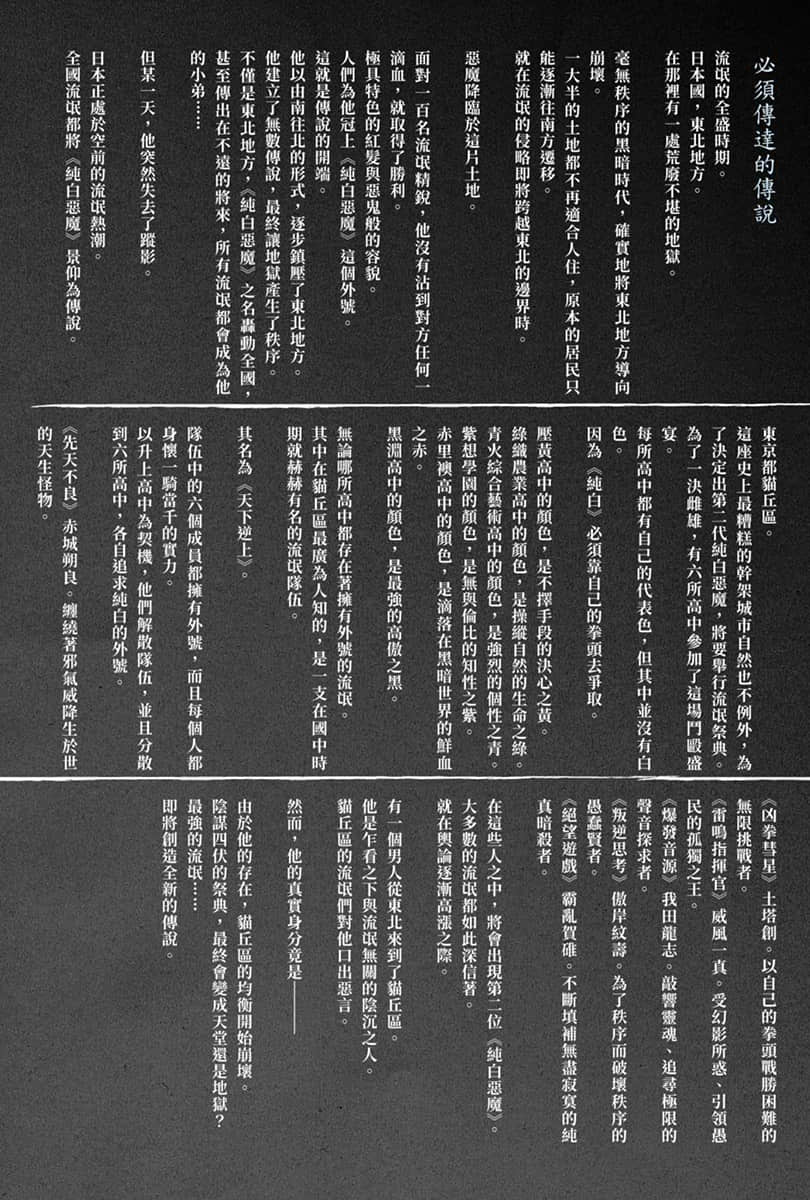 必須傳達的傳說
流氓的全盛時期。
日本國，東北地方。
在那裡有一處荒廢不堪的地獄。
毫無秩序的黑暗時代，確實地將東北地方導向
崩壞。
一大半的土地都不再適合人住，原本的居民只
能逐漸往南方遷移。
就在流氓的侵略即將跨越東北的邊界時。
惡魔降臨於這片土地。
面對一百名流氓精銳，他沒有沾到對方任何一
滴血，就取得了勝利。
極具特色的紅髮與惡鬼般的容貌。
人們為他冠上《純白惡魔》這個外號。
這就是傳說的開端。
他以由南往北的形式，逐步鎮壓了東北地方。
他建立了無數傳說，最終讓地獄產生了秩序。
不僅是東北地方，《純白惡魔》之名轟動全國，
甚至傳出在不遠的將來，所有流氓都會成為他
的小弟……
但某一天，他突然失去了蹤影。
日本正處於空前的流氓熱潮。
全國流氓都將《純白惡魔》景仰為傳說。
東京都貓丘區。
這座史上最糟糕的幹架城市自然也不例外，為
了決定出第二代純白惡魔，將要舉行流氓祭典。
為了一決雌雄，有六所高中參加了這場鬥毆盛
宴。
每所高中都有自己的代表色，但其中並沒有白
色。
因為《純白》必須靠自己的拳頭去爭取。
壓黃高中的顏色，是不擇手段的決心之黃。
綠織農業高中的顏色，是操縱自然的生命之綠。
青火綜合藝術高中的顏色，是強烈的個性之青。
紫想學園的顏色，是無與倫比的知性之紫。
赤里襖高中的顏色，是滴落在黑暗世界的鮮血
之赤。
黑淵高中的顏色，是最強的高傲之黑。
無論哪所高中都存在著擁有外號的流氓。
其中在貓丘區最廣為人知的，是一支在國中時
期就赫赫有名的流氓隊伍。
其名為《天下逆上》。
隊伍中的六個成員都擁有外號，而且每個人都
身懷一騎當千的實力。
以升上高中為契機，他們解散隊伍，並且分散
到六所高中，各自追求純白的外號。
《先天不良》赤城朔良。纏繞著邪氣威降生於世
的天生怪物。
《凶拳彗星》土塔創。以自己的拳頭戰勝困難的
無限挑戰者。
《雷鳴指揮官》威風一真。受幻影所惑、引領愚
民的孤獨之王。
《爆發音源》我田龍志。敲響靈魂、追尋極限的
聲音探求者。
《叛逆思考》傲岸紋壽。為了秩序而破壞秩序的
愚蠢賢者。
《絕望遊戲》霸亂賀碓。不斷填補無盡寂寞的純
真暗殺者。
在這些人之中，將會出現第二位《純白惡魔》。
大多數的流氓都如此深信著。
就在輿論逐漸高漲之際。
有一個男人從東北來到了貓丘區。
他是乍看之下與流氓無關的陰沉之人。
貓丘區的流氓們對他口出惡言。
然而，他的真實身分竟是——
由於他的存在，貓丘區的均衡開始崩壞。
陰謀四伏的祭典，最終會變成天堂還是地獄？
最強的流氓……
即將創造全新的傳說。